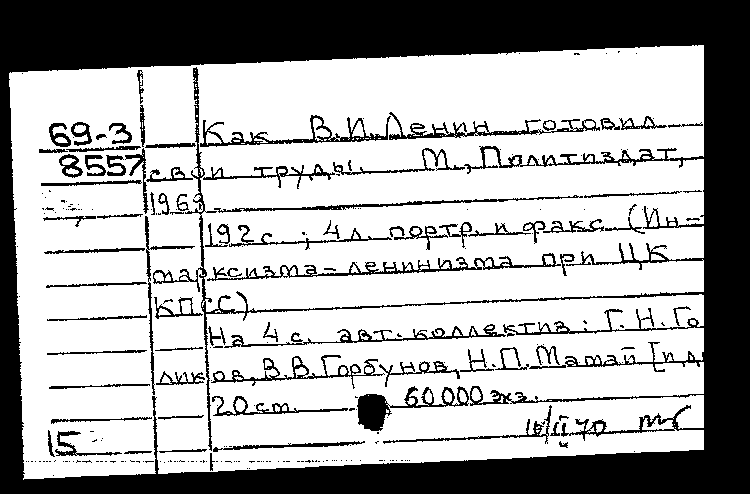 69-3
8557
Как В.И.Ленин готовил
свои труды. М., Политиздат,
1969.
192 с.; 4 л. портр. и факс (Ин-т
марксизма-ленинизма при ЦК
КПСС).
На 4 с. авт. коллектив: Г.Н.Го
ликов, В.В.Горбунов, Н.П.Мамай [и др
20 cm. 60000 экз.
15
II 70